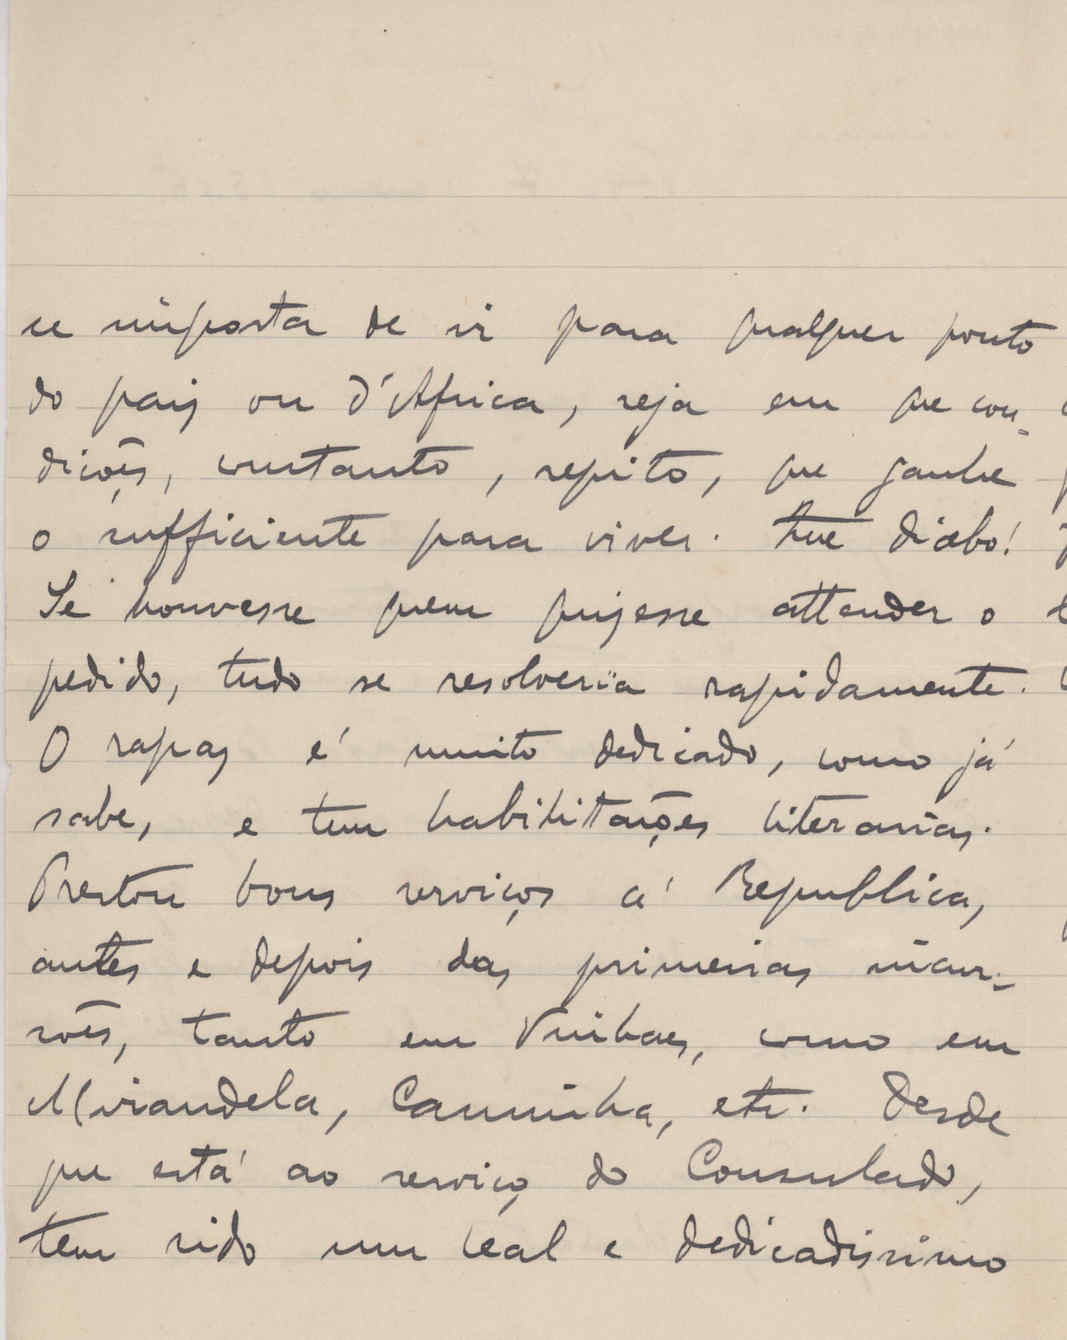 se importa de ir para qualquer ponto
do paiz ou d'Africa, seja em que con-
dições, contanto, repito, que ganhe
o sufficiente para viver. Que diabo!
Se houvesse quem quizesse attender o
pedido, tudo se resolveria rapidamente.
O rapaz é muito dedicado, como já
sabe, e tem habilitações literarias.
Prestou bons serviços á Republica,
antes e depois das primeiras incur-
sões, tanto em Vinhaes, como em
Mirandela, Caminha, etc. Desde
que está ao serviço do Consulado,
tem sido um leal e dedicadissimo